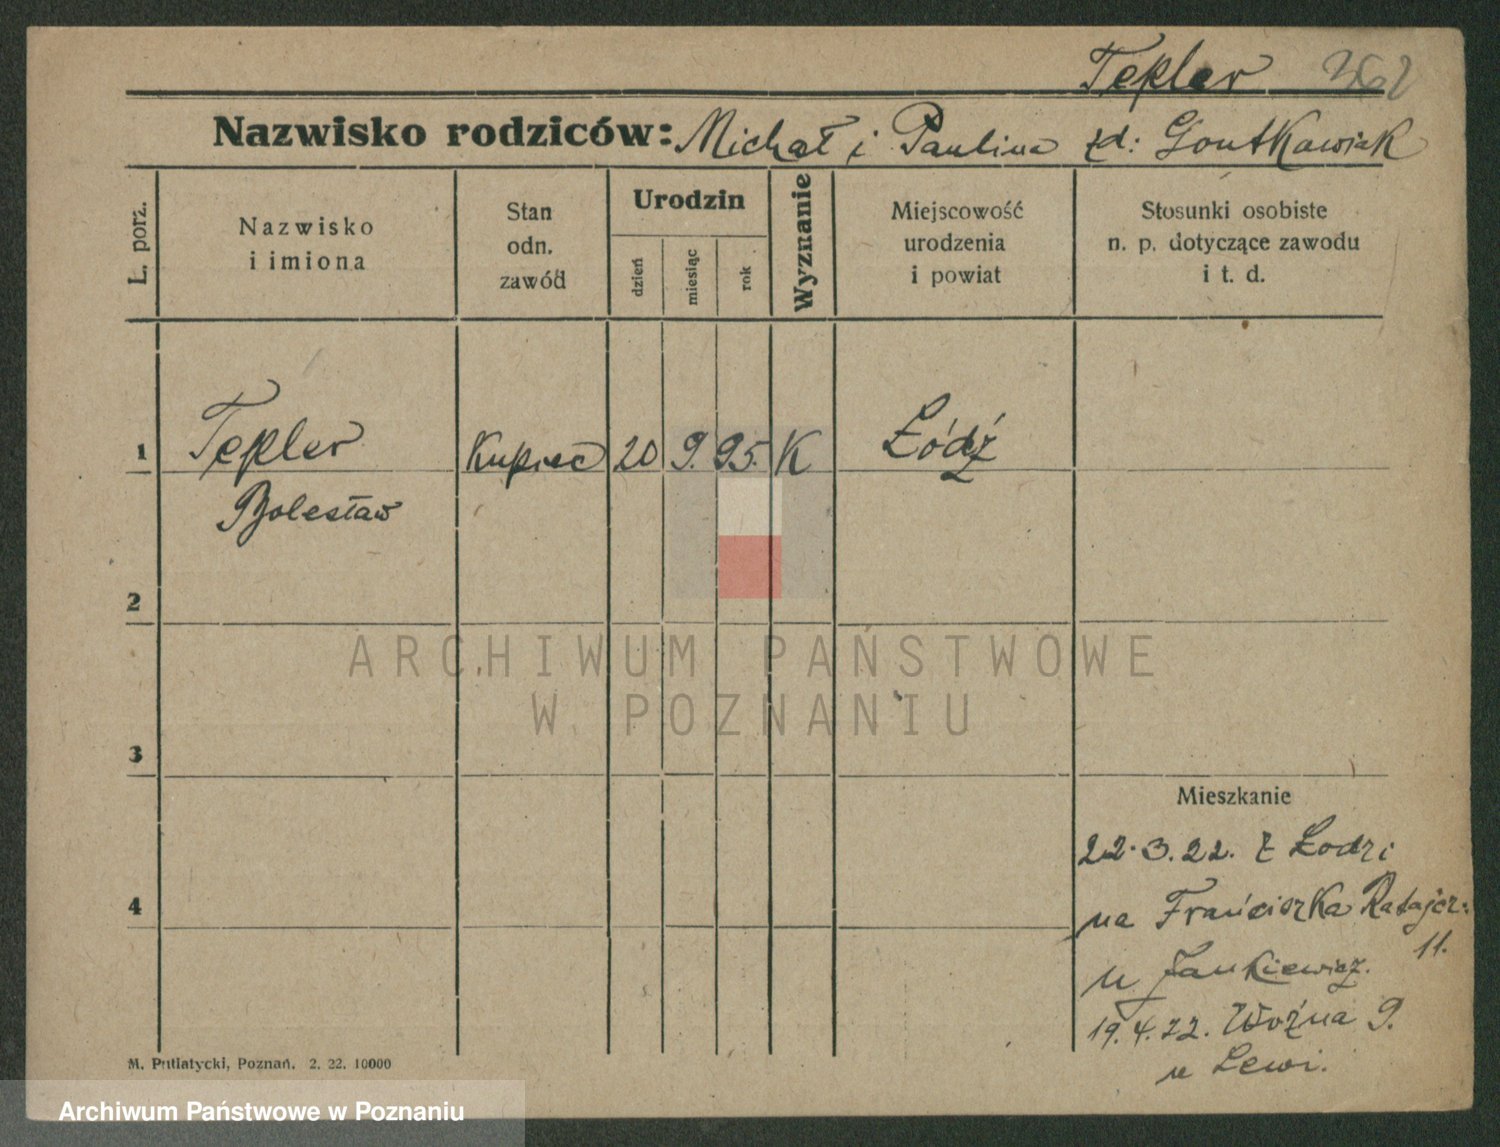 Tepler 362
Nazwisko rodziców: Michał i Paulina zd: Goutkawiak
L. porz.
Nazwisko
i imiona
Stan
odn.
zawód
Urodzin
dzień
miesiąc
rok
Wyznanie
Miejscowość
urodzenia
i powiat
Stosunki osobiste
n. p. dotyczące zawodu
i t. d.
1 Tepler Kupiec 20 9. 95. K Łódź
Bolesław
2
ARCHIWUM PAŃSTWOWE
W POZNANIU
3
Mieszkanie
22.3.22. z Łodzi
4
na Franciszka Ratajcz:
11.
u Jankiewicz.
19.4.22. Woźna 9.
u Lewi.
M. Putiatycki, Poznań. 2. 22. 10000
Archiwum Państwowe w Poznaniu